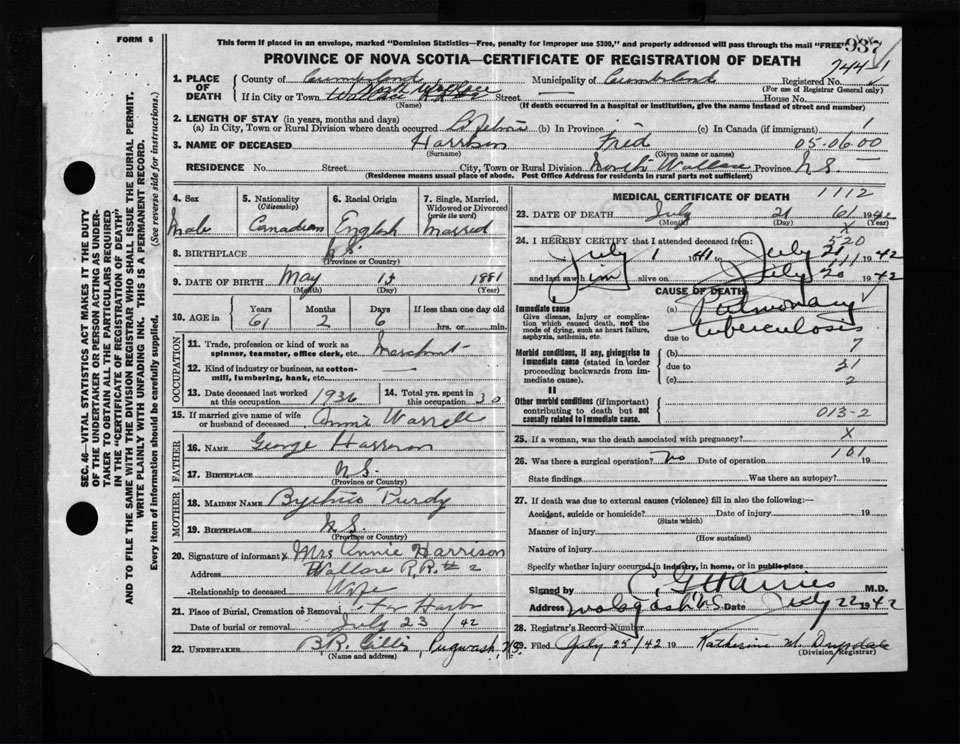 FORM 6
This form if placed in an envelope, marked "Dominion Statistics—Free, penalty for improper use $300," and properly addressed will pass through the mail "FREE"
937
PROVINCE OF NOVA SCOTIA—CERTIFICATE OF REGISTRATION OF DEATH
7441
1. PLACE OF DEATH
County of Cumberland Municipality of Cumberland Registered No.
(For use of Registrar General only)
If in City or Town North Wallace Street — House No.
(Name) (If death occurred in a hospital or institution, give the name instead of street and number)
2. LENGTH OF STAY (in years, months and days)
(a) In City, Town or Rural Division where death occurred (b) In Province (c) In Canada (if immigrant) 1
3. NAME OF DECEASED Harrison Fred 05-06 00
(Surname) (Given name or names)
RESIDENCE No. Street City, Town or Rural Division North Wallace Province N.S.
(Residence means usual place of abode. Post Office Address for residents in rural parts not sufficient)
4. Sex Male
5. Nationality (Citizenship) Canadian
6. Racial Origin English
7. Single, Married, Widowed or Divorced (write the word) Married
8. BIRTHPLACE N.S.
(Province or Country)
9. DATE OF BIRTH May 15 1881
(Month) (Day) (Year)
10. AGE in Years Months Days If less than one day old
61 2 6 hrs. or min.
OCCUPATION
11. Trade, profession or kind of work as spinner, teamster, office clerk, etc. Merchant
12. Kind of industry or business, as cotton-mill, lumbering, bank, etc. —
13. Date deceased last worked at this occupation 1936
14. Total yrs. spent in this occupation 30
15. If married give name of wife or husband of deceased Annie Warrell
FATHER
16. NAME George Harrison
17. BIRTHPLACE N.S.
(Province or Country)
MOTHER
18. MAIDEN NAME Purdy
19. BIRTHPLACE N.S.
(Province or Country)
20. Signature of informant x Mrs Annie Harrison
Address Wallace R.R. # 2
Relationship to deceased Wife
21. Place of Burial, Cremation or Removal Fox Harbr
Date of burial or removal July 23 / 42
22. UNDERTAKER B.R. Gillis Pugwash N.S.
(Name and address)
MEDICAL CERTIFICATE OF DEATH 1112
23. DATE OF DEATH July 21 61 1942
(Month) (Day) (Year)
24. I HEREBY CERTIFY that I attended deceased from: x 520
July 1 1941 to July 21 1942
and last saw him alive on July 20 1942
CAUSE OF DEATH
Immediate cause
Give disease, injury or complication which caused death, not the mode of dying, such as heart failure, asphyxia, asthenia, etc.
(a) Pulmonary tuberculosis
due to
Morbid conditions, if any, giving rise to immediate cause (stated in order proceeding backwards from immediate cause).
(b) 7
due to 21
(c) 2
II
Other morbid conditions (if important) contributing to death but not causally related to immediate cause.
013-2
25. If a woman, was the death associated with pregnancy? X
26. Was there a surgical operation? No Date of operation 101 19
State findings Was there an autopsy?
27. If death was due to external causes (violence) fill in also the following:—
Accident, suicide or homicide? Date of injury 19
(State which)
Manner of injury
(How sustained)
Nature of injury
Specify whether injury occurred in industry, in home, or in public place
Signed by M.D.
Address Date July 22 1942
28. Registrar's Record Number
29. Filed July 25/42 19 Katherine M. Drysdale
(Division Registrar)
SEC. 46—VITAL STATISTICS ACT MAKES IT THE DUTY
OF THE UNDERTAKER OR PERSON ACTING AS UNDER-
TAKER TO OBTAIN ALL THE PARTICULARS REQUIRED
IN THE "CERTIFICATE OF REGISTRATION OF DEATH"
AND TO FILE THE SAME WITH THE DIVISION REGISTRAR WHO SHALL ISSUE THE BURIAL PERMIT.
WRITE PLAINLY WITH UNFADING INK. THIS IS A PERMANENT RECORD.
Every item of information should be carefully supplied. (See reverse side for instructions.)